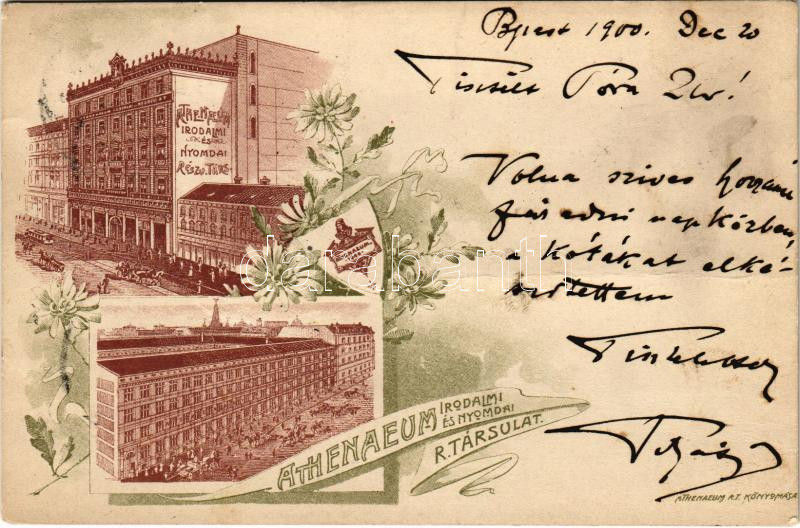 Bpest 1900. Dec 20
Tisztelt Póra Úr!
Volna szives hozzám
fáradni napközben,
a kótákat elké-
szitettem
Tisztelettel
ATHENAEUM
IRODALMI
ÉS
NYOMDAI
RÉSZV. TÁRS.
ATHENAEUM IRODALMI
ÉS NYOMDAI
R. TÁRSULAT.
ATHENAEUM R.T. KÖNYOMÁSA
darabanth